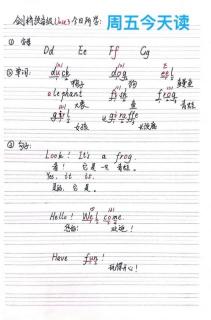 剑桥预备级Unit3今日所学：
周五今天读
① 字母
Dd Ee Ff Gg
② 单词： duck dog eel
鸭子 狗 鳗鱼
elephant fish frog
大象 鱼 青蛙
girl giraffe
女孩 长颈鹿
③ 句子：
Look! It's a frog.
看！它是一只青蛙。
Yes, it is.
是的，它是。
Hello! Welcome.
您好！欢迎！
Have fun!
玩得开心！